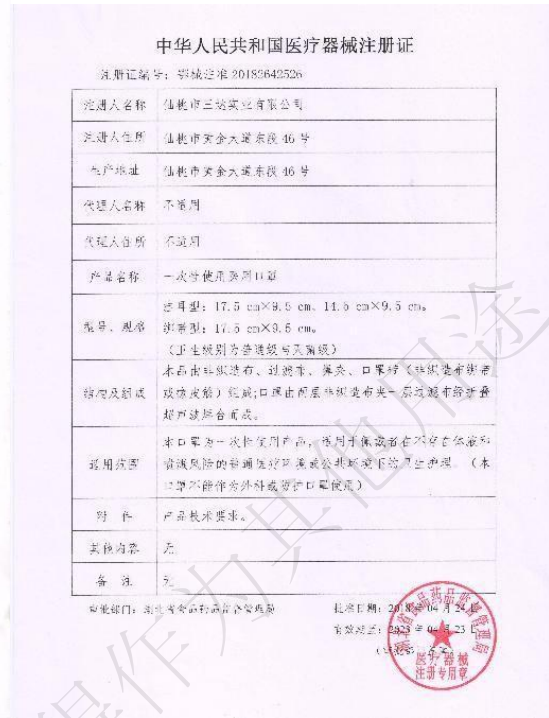 中华人民共和国医疗器械注册证
注册证编号：鄂械注准 20182642526
注册人名称 仙桃市三达实业有限公司
注册人住所 仙桃市黄金大道东段 46 号
生产地址 仙桃市黄金大道东段 46 号
代理人名称 不适用
代理人住所 不适用
产品名称 一次性使用医用口罩
型号、规格
挂耳型：17.5 cm×9.5 cm、14.5 cm×9.5 cm。
绑带型：17.5 cm×9.5 cm。
（卫生级别为普通级与灭菌级）
结构及组成
本品由非织造布、过滤布、鼻夹、口罩带（非织造布绑带
或橡皮筋）组成;口罩由两层非织造布夹一层过滤布经折叠
超声波焊合而成。
适用范围
本口罩为一次性使用产品，适用于佩戴者在不存在体液和
喷溅风险的普通医疗环境或公共环境下的卫生护理。（本
口罩不能作为外科或防护口罩使用）
附 件 产品技术要求。
其他内容 无
备 注 无
审批部门：湖北省食品药品监督管理局 批准日期：2018 年 04 月 24 日
有效期至：2023 年 04 月 23 日
湖北省食品药品监督管理局
医疗器械
注册专用章
作为其他用途